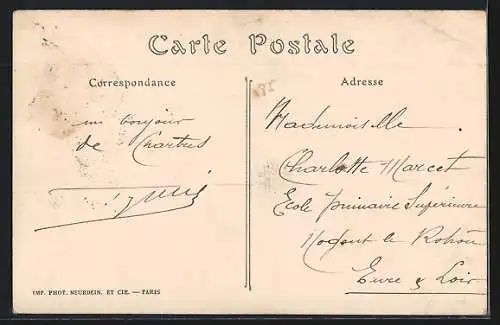 Carte Postale
Correspondance
Adresse
85
un bonjour
de Chartres
Mademoiselle
Charlotte Marcet
Ecole primaire Supérieure
Nogent le Rotrou
Eure & Loir
IMP. PHOT. NEURDEIN, ET CIE. — PARIS